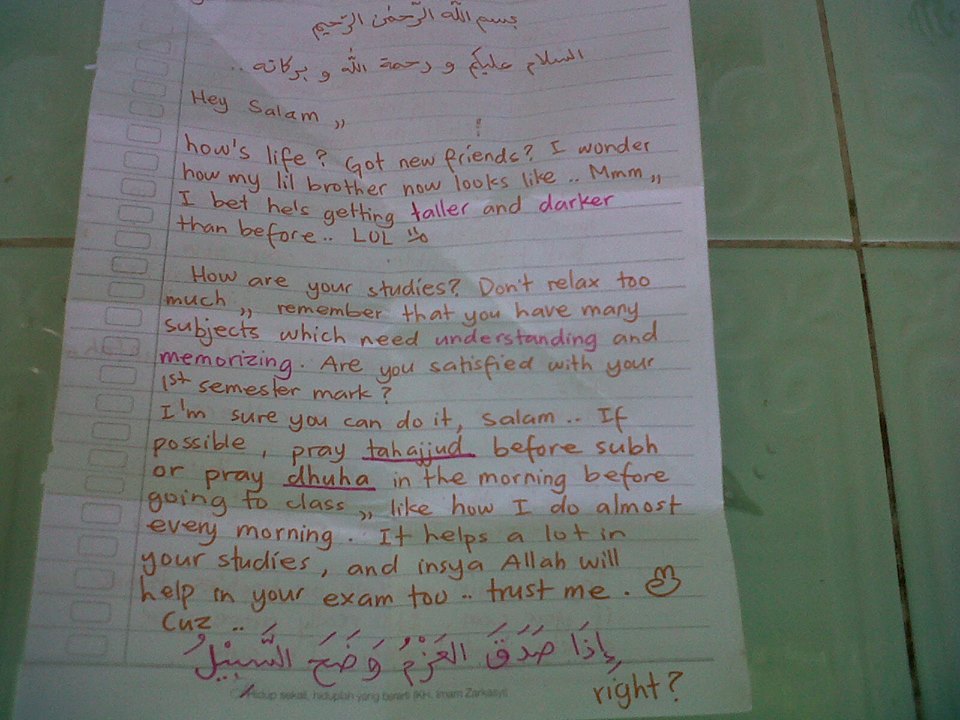 بسم الله الرّحمٰن الرّحيم
السلام عليكم و رحمة الله و بركاته ..
Hey Salam ,,
how's life? Got new friends? I wonder
how my lil brother now looks like .. Mmm ,,
I bet he's getting taller and darker
than before .. LOL
How are your studies? Don't relax too
much ,, remember that you have many
subjects which need understanding and
memorizing. Are you satisfied with your
1st semester mark?
I'm sure you can do it, Salam .. If
possible, pray tahajjud before subh
or pray dhuha in the morning before
going to class ,, like how I do almost
every morning. It helps a lot in
your studies, and insya Allah will
help in your exam too .. trust me.
Cuz ..
إِذَا صَدَقَ العَزْمُ وَضَحَ السَّبِيْلُ
right?
hidup sekali, hiduplah yang berarti (KH. Imam Zarkasyi)